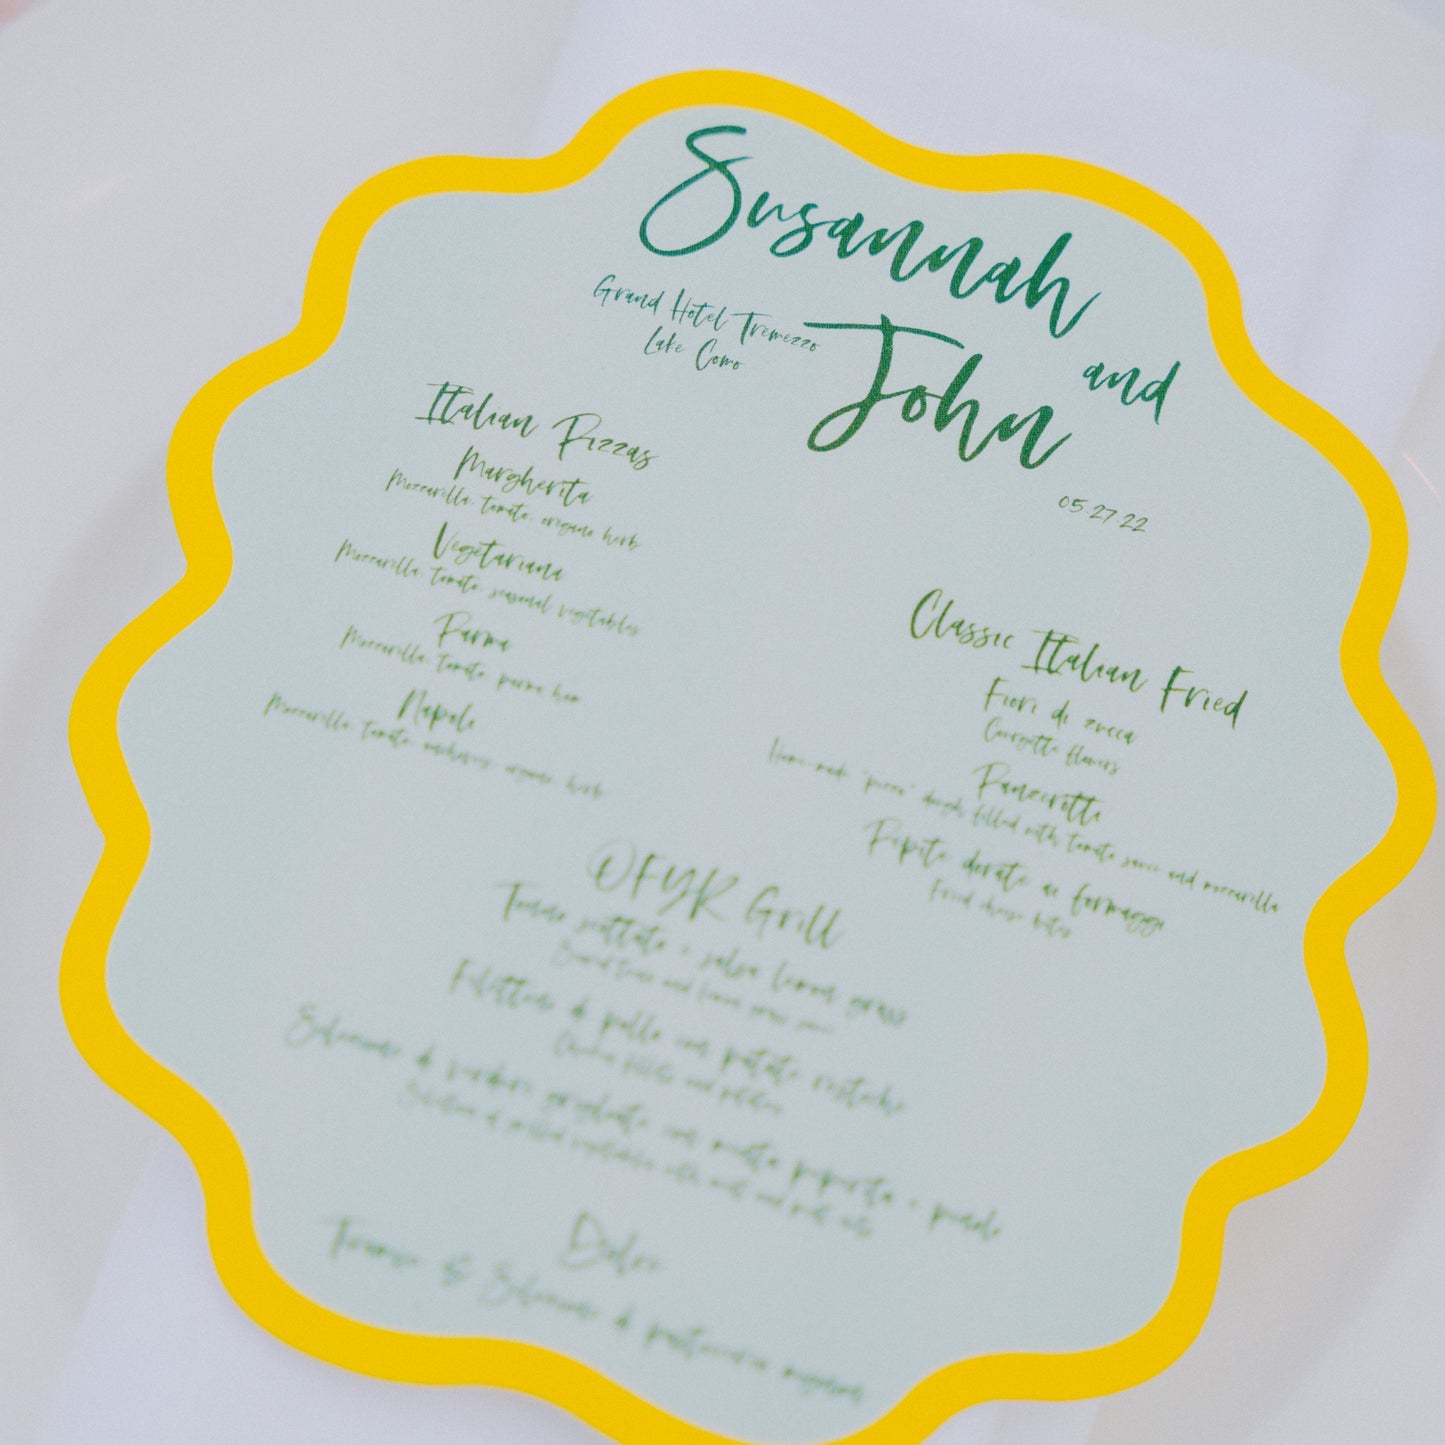 Susannah
and
John
Grand Hotel Tremezzo
Lake Como
05.27.22
Italian Pizzas
Margherita
Mozzarilla, tomato, origano herb
Vegetariana
Mozzarilla, tomato, seasonal vegetables
Parma
Mozzarilla, tomato, parma ham
Napole
Mozzarilla, tomato, origano herb
Classic Italian Fried
Fiori di zucca
Courgette flowers
Panzerotti
Home-made "pizza" dough filled with tomato sauce and mozzarilla
Pepite dorate ai formaggi
Fried cheese bites
OFYR Grill
Tonno scottato e salsa lemon grass
Seared tuna and lemon grass
Filettini di pollo con patate rustiche
Chicken fillets and potatoes
Selezione di verdure grigliate con menta peperita e pinole
Selection of grilled vegetables with mint and pine nuts
Dolci
Tiramisu & Selezione di pasticceria mignon